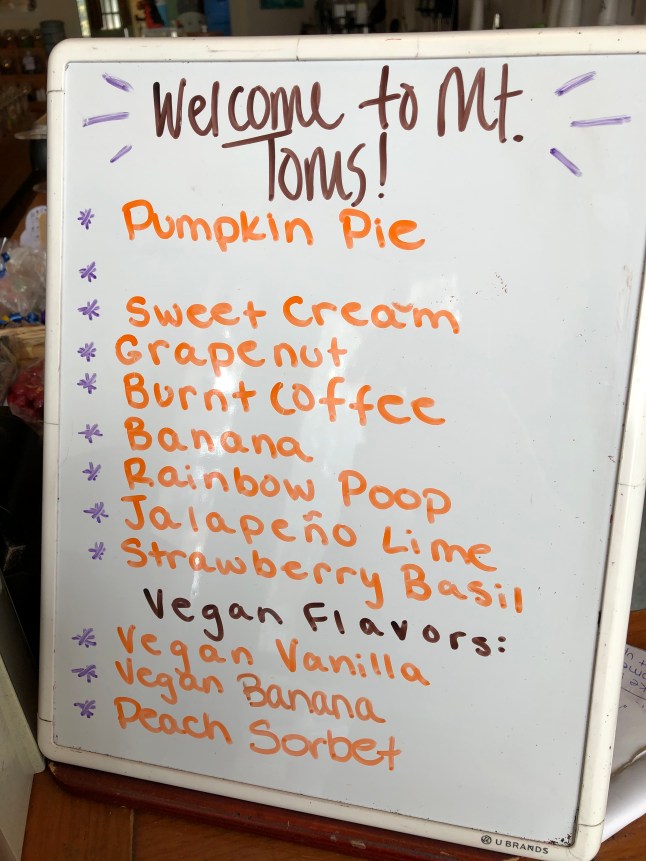 Welcome to Mt.
Torus!
* Pumpkin Pie
*
* Sweet Cream
* Grapenut
* Burnt Coffee
* Banana
* Rainbow Poop
* Jalapeño Lime
* Strawberry Basil
Vegan Flavors:
* Vegan Vanilla
* Vegan Banana
* Peach Sorbet
U BRANDS